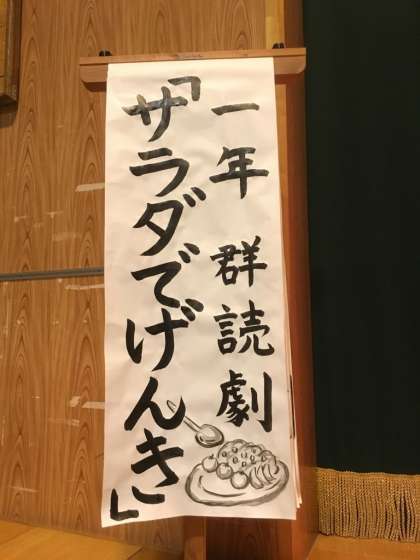 一年 群読劇
「サラダでげんき」